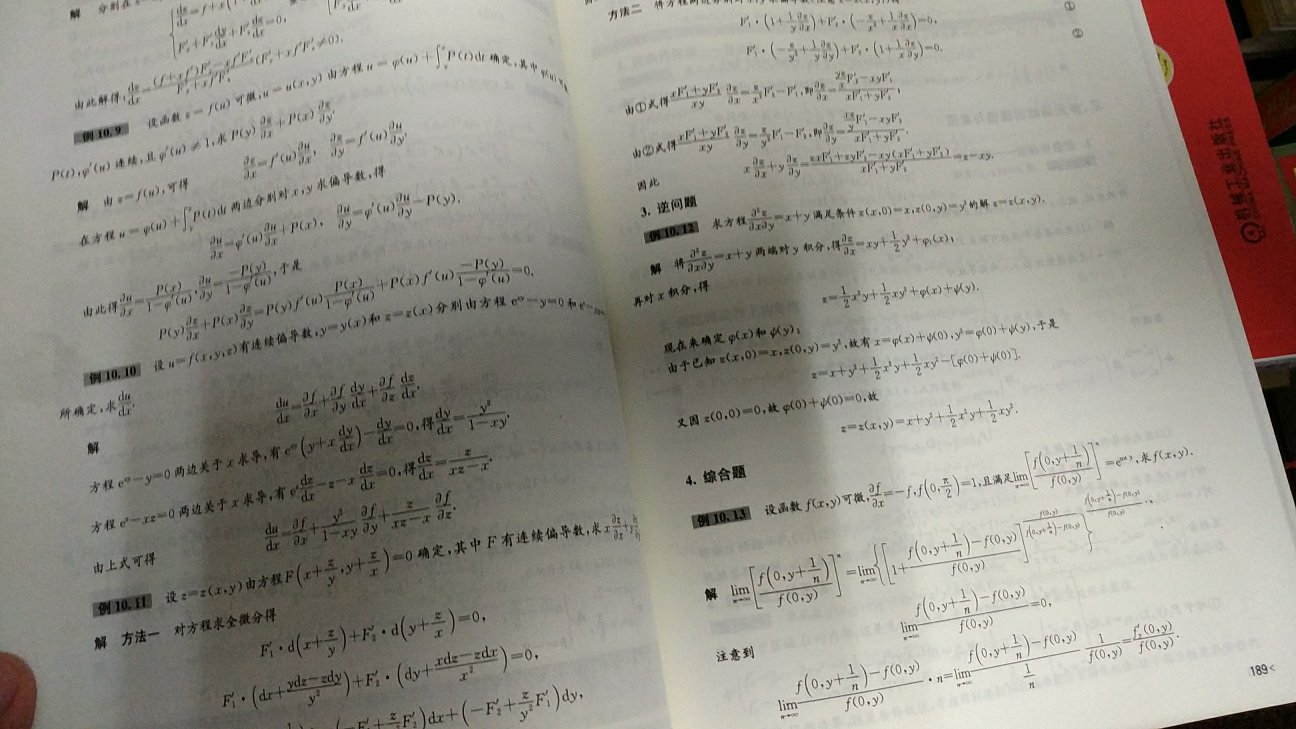 解 分别在
由此解得, dz/dx=((f+xf′)F′_y-xf′F′_x)/(F′_y+xf′F′_z) (F′_y+xf′F′_z≠0).
例10.9 设函数z=f(u)可微,u=u(x,y)由方程u=φ(u)+∫P(t)dt确定,其中
P(t),φ′(u)连续,且φ′(u)≠1,求P(y)∂z/∂x+P(x)∂z/∂y.
解 由z=f(u),可得 ∂z/∂x=f′(u)∂u/∂x, ∂z/∂y=f′(u)∂u/∂y.
在方程u=φ(u)+∫P(t)dt两边分别对x,y求偏导数,得
∂u/∂x=φ′(u)∂u/∂x+P(x), ∂u/∂y=φ′(u)∂u/∂y-P(y).
由此得∂u/∂x=P(x)/(1-φ′(u)),∂u/∂y=-P(y)/(1-φ′(u)),于是
P(y)∂z/∂x+P(x)∂z/∂y=P(y)f′(u)P(x)/(1-φ′(u))+P(x)f′(u)(-P(y))/(1-φ′(u))=0.
例10.10 设u=f(x,y,z)有连续偏导数,y=y(x)和z=z(x)分别由方程e^{xy}-y=0和
所确定,求du/dx.
解 du/dx=∂f/∂x+∂f/∂y dy/dx+∂f/∂z dz/dx.
方程e^{xy}-y=0两边关于x求导,有e^{xy}(y+x dy/dx)-dy/dx=0,得dy/dx=y²/(1-xy).
方程e^z-xz=0两边关于x求导,有e^z dz/dx-z-x dz/dx=0,得dz/dx=z/(xz-x).
由上式可得 du/dx=∂f/∂x+y²/(1-xy) ∂f/∂y+z/(xz-x) ∂f/∂z.
例10.11 设z=z(x,y)由方程F(x+z/y,y+z/x)=0确定,其中F有连续偏导数,求x∂z/∂x+y
解 方法一 对方程求全微分得
F′₁·d(x+z/y)+F′₂·d(y+z/x)=0,
F′₁·(dx+(ydz-zdy)/y²)+F′₂·(dy+(xdz-zdx)/x²)=0,
(-F′₁+z/x²F′₂)dx+(-F′₂+z/y²F′₁)dy,
方法二 将方程两边分别对
F′₁·(1+1/y ∂z/∂x)+F′₂·(-z/x²+1/x ∂z/∂x)=0, ①
F′₁·(-z/y²+1/y ∂z/∂y)+F′₂·(1+1/x ∂z/∂y)=0. ②
由①式得(xF′₁+yF′₂)/xy ∂z/∂x=z/x²F′₂-F′₁,即∂z/∂x=(yz/xF′₂-xyF′₁)/(xF′₁+yF′₂);
由②式得(xF′₁+yF′₂)/xy ∂z/∂y=z/y²F′₁-F′₂,即∂z/∂y=(xz/yF′₁-xyF′₂)/(xF′₁+yF′₂).
因此 x∂z/∂x+y∂z/∂y=(zxF′₁+zyF′₂-xy(xF′₁+yF′₂))/(xF′₁+yF′₂)=z-xy.
3. 逆问题
例10.12 求方程∂²z/∂x∂y=x+y满足条件z(x,0)=x,z(0,y)=y²的解z=z(x,y).
解 将∂²z/∂x∂y=x+y两端对y积分,得∂z/∂x=xy+1/2y²+φ₁(x);
再对x积分,得
z=1/2x²y+1/2xy²+φ(x)+ψ(y).
现在来确定φ(x)和ψ(y);
由于已知z(x,0)=x,z(0,y)=y²,故有x=φ(x)+ψ(0),y²=φ(0)+ψ(y),于是
z=x+y²+1/2x²y+1/2xy²-[φ(0)+ψ(0)].
又因z(0,0)=0,故φ(0)+ψ(0)=0,故
z=z(x,y)=x+y²+1/2x²y+1/2xy².
4. 综合题
例10.13 设函数f(x,y)可微,∂f/∂x=-f,f(0,π/2)=1,且满足lim_{n→∞}[f(0,y+1/n)/f(0,y)]^n=e^{cot y},求f(x,y).
解 lim_{n→∞}[f(0,y+1/n)/f(0,y)]^n=lim_{n→∞}{[1+(f(0,y+1/n)-f(0,y))/f(0,y)]^{f(0,y)/(f(0,y+1/n)-f(0,y))}}^{(f(0,y+1/n)-f(0,y))/f(0,y)·n}.
注意到 lim_{n→∞}(f(0,y+1/n)-f(0,y))/f(0,y)=0,
lim_{n→∞}(f(0,y+1/n)-f(0,y))/f(0,y)·n=lim_{n→∞}(f(0,y+1/n)-f(0,y))/(1/n) 1/f(0,y)=f′_y(0,y)/f(0,y).
189<
机械工业出版社